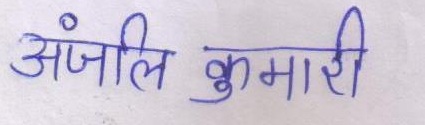 अंजलि कुमारी